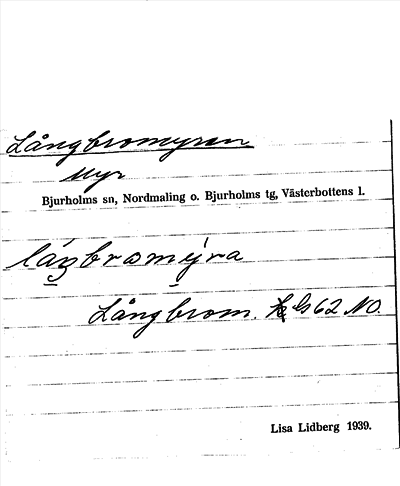 Långbromyren
Myr
Bjurholms sn, Nordmaling o. Bjurholms tg, Västerbottens l.
Långbrom. G62 NO.
Lisa Lidberg 1939.